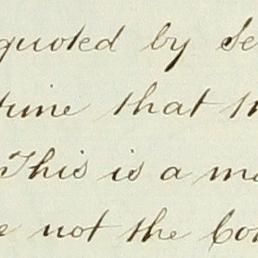 quoted by Se
trine that th
This is a m
e not the Con